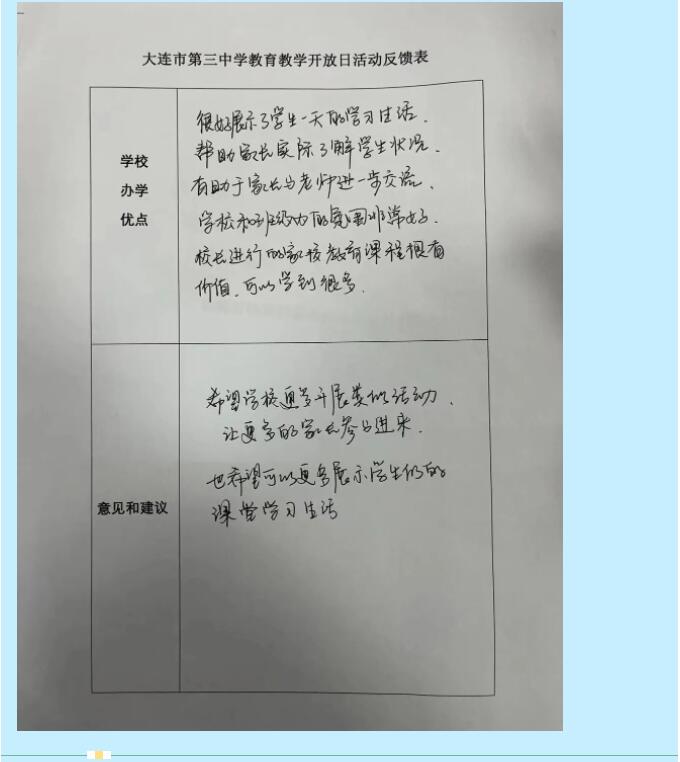 大连市第三中学教育教学开放日活动反馈表
学校
办学
优点
很好展示了学生一天的学习生活.
帮助家长实际了解学生状况.
有助于家长与老师进一步交流.
学校和班级的氛围非常好.
校长进行的家校教育课程很有
价值.可以学到很多.
意见和建议
希望学校更多开展类似活动.
让更多的家长参与进来.
也希望可以更多展示学生们的
课堂学习生活